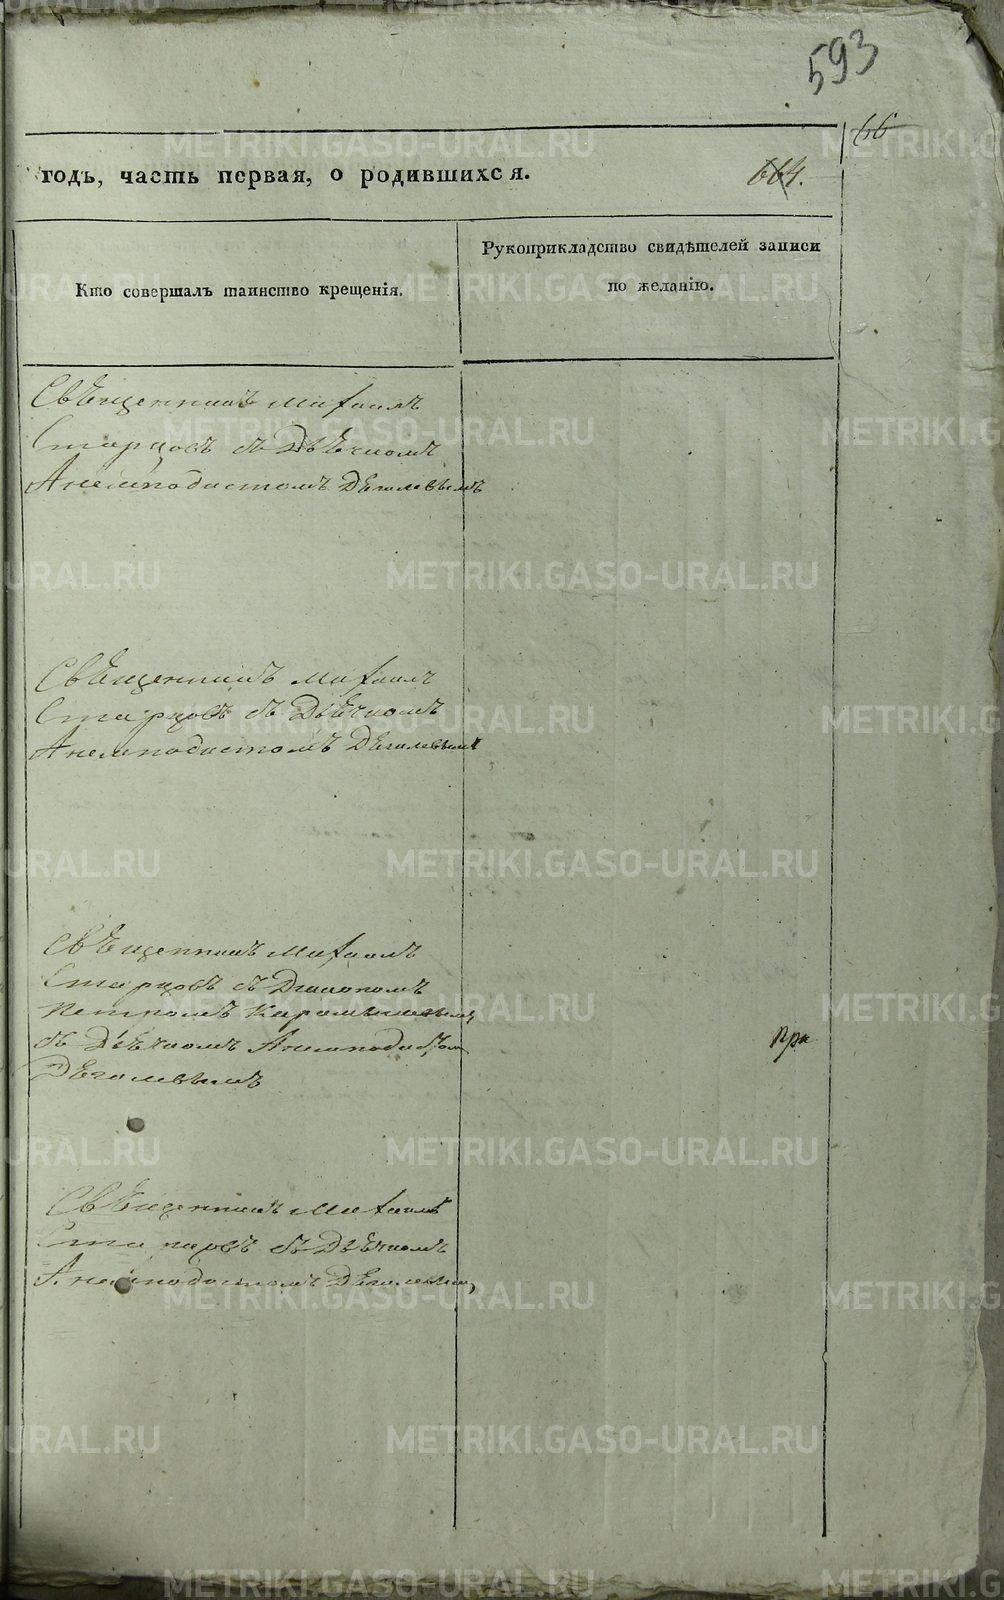 593
66
годъ, часть первая, о родившихся.
664.
Кто совершалъ таинство крещенія.
Рукоприкладство свидѣтелей записи
по желанію.
Свѣщенникъ Михаилъ
Старцовъ съ Дьѣчкомъ
Анемподистомъ Дѣголевымъ
Свѣщенникъ Михаилъ
Старцовъ съ Дьѣчкомъ
Анемподистомъ Дѣголевымъ
Свѣщенникъ Михаилъ
Старцовъ съ Диакономъ
Петромъ
съ Дьѣчкомъ Анемподистом
Дѣголевымъ
Свѣщенникъ Михаилъ
Старцовъ съ Дьѣчкомъ
Анемподистомъ Дѣголевым
METRIKI.GASO-URAL.RU